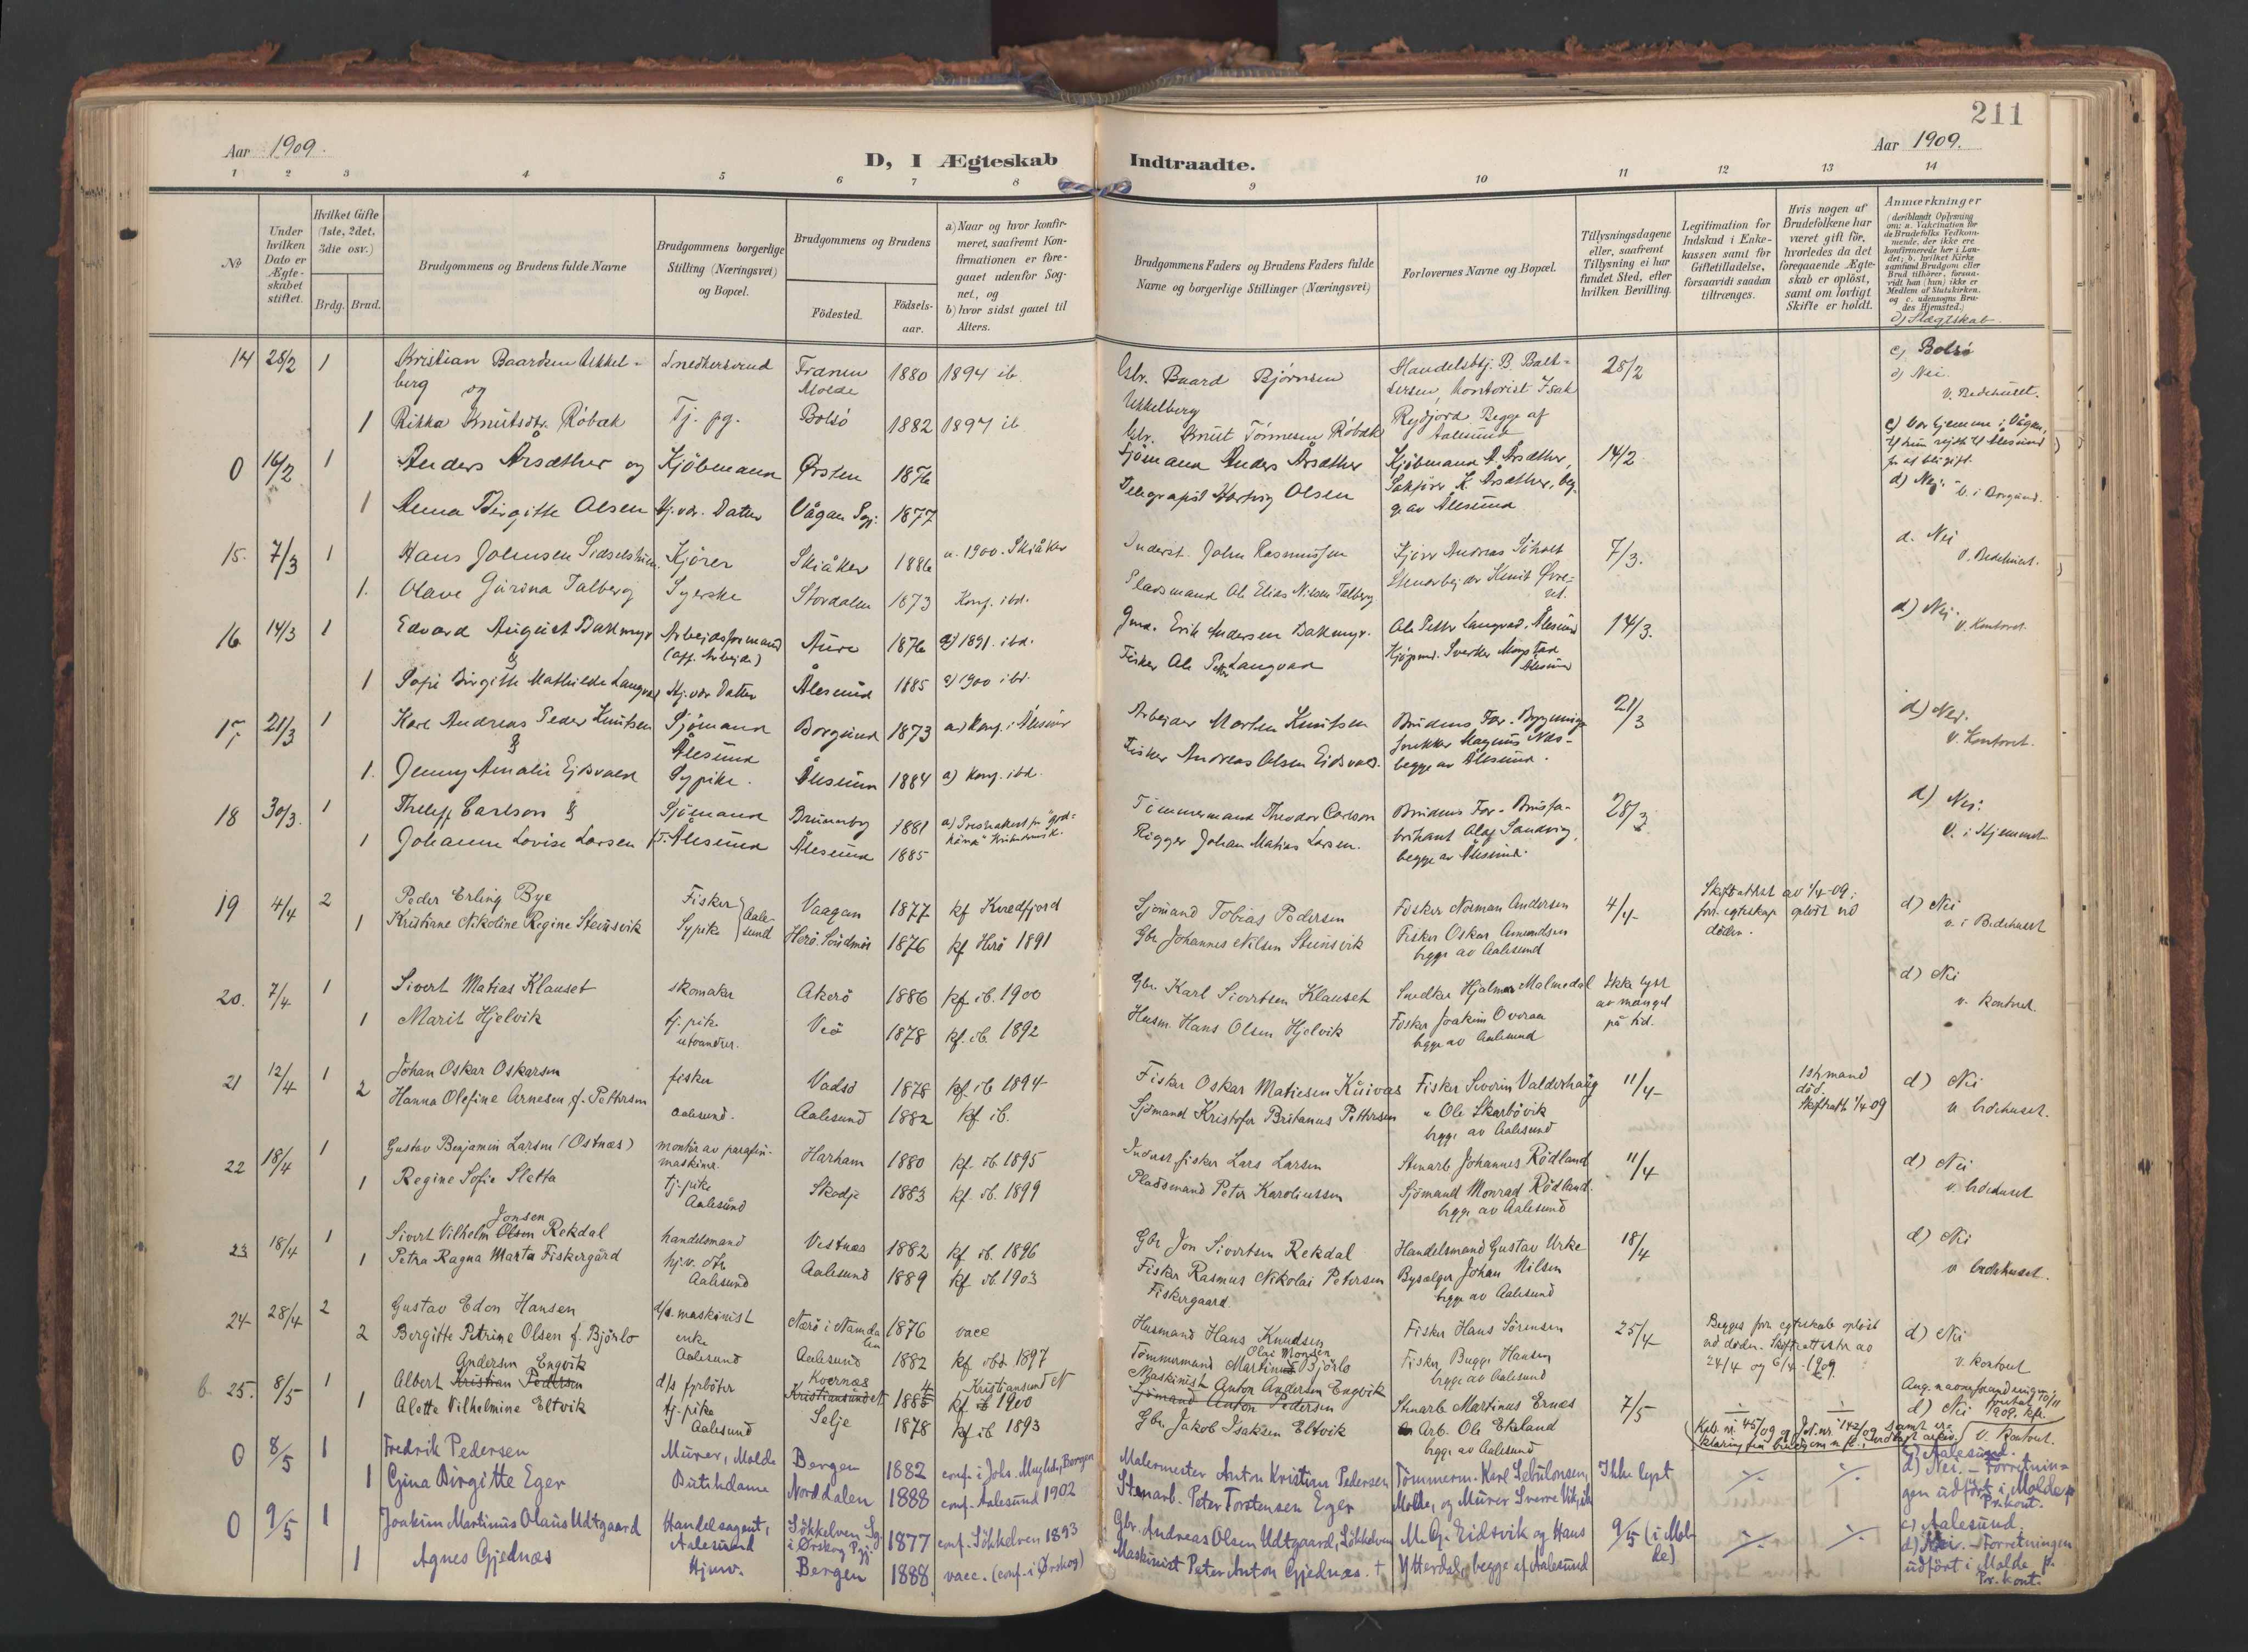 211
Aar 1909.
D, I Ægteskab
Indtraadte.
Aar 1909.
1 2 3 4 5 6 7 8 9 10 11 12 13 14
Nr
Under hvilken Dato er Ægte-skabet stiftet.
Hvilket Gifte (1ste, 2det, 3die osv.)
Brdg. Brud.
Brudgommens og Brudens fulde Navne
Brudgommens borgerlige Stilling (Næringsvei) og Bopæl.
Brudgommens og Brudens
Födested.
Födsels-aar.
a) Naar og hvor konfir-meret, saafremt Kon-firmationen er fore-gaaet udenfor Sog-net, og
b) hvor sidst gaaet til Alters.
Brudgommens Faders og Brudens Faders fulde Navne og borgerlige Stillinger (Næringsvei)
Forlovernes Navne og Bopæl.
Tillysningsdagene eller, saafremt Tillysning ei har fundet Sted, efter hvilken Bevilling.
Legitimation for Indskud i Enke-kassen samt for Giftetilladelse, forsaavidt saadan tiltrænges.
Hvis nogen af Brudefolkene har været gift för, hvorledes da det foregaaende Ægte-skab er oplöst, samt om lovligt Skifte er holdt.
Anmærkninger
(deriblandt Oplysning om: a. Vakcination for de Brudefolks Vedkom-mende, der ikke ere konfirmerede her i Lan-det; b. hvilket Kirke-samfund Brudgom eller Brud tilhörer, forsaa-vidt han (hun) ikke er Medlem af Statskirken, og c. udensogns Bru-des Hjemsted.)
d) Slægtskab.
14 28/2 1 Kristian Baardsen Ukkel-
berg og
Snedkersvend
Frænen
Molde 1880 1894 ib.
Gbr. Baard Bjørnsen
Ukkelberg
Handelsbtj. B. Balt-
sersen, kontorist Isak
28/2
c) Bolsö
d) Nei
v. Bedehuset.
1 Rikka Knutsdtr. Röbak Tj. pg. Bolsö 1882 1897 ib
Gbr. Knut Tönnesen Röbak
Rydjord. Begge af
Aalesund
0 16/2 1 Anders Årsæther og Kjöbmand Ørsten 1876
Sjömand Anders Årsæther
Kjöbmand A. Årsæther,
14/2
c) var hjemme i Vågan,
d) Nei. v. i Borgund.
1 Anna Birgitte Olsen Hj. vær. Datter Vågan Pgj. 1877
Telegrafist Hartvig Olsen
Sakförer K. Årsæther, beg-
ge av Ålesund
15. 7/3 1 Hans Johnsen Kjörer Skiåker 1886 a. 1900. Skiåker
Inderst. John Rasmussen
Kjörer Andreas Söholt
7/3.
d. Nei
v. Bedehuset.
1. Olave Gurina Talberg Syerske Stordalen 1873 Konf. ibd.
Pladsmand Ole Elias Nilsen Talberg
Stenarbejder Knut Øvre-
16. 14/3 1 Edvard August Bakmyr Arbejdsformand
(off. Arbejde) Aure 1876 a) 1891. ibd.
Gmd. Erik Andersen Bakmyr.
Ole Petter Langvad, Ålesund
14/3.
d) Nei.
v. Kontoret.
&
1 Sofie Birgitte Mathilde Langvad Hj. vær Datter Ålesund 1885 a) 1900 ibd.
Fisker Ole Petter Langvad
Kjöpmd. Sverker
Ålesund
17. 21/3 1 Karl Andreas Peder Knutsen Sjömand
Ålesund Borgund 1873 a) Konf. i Ålesund
Arbejder Morten Knutsen
Brudens Far. Bygnings-
snekker Magnus Næs-
begge av Ålesund.
21/3
d) Nej.
v. Kontoret.
&
1. Jenny Amalie Ejdsvaen Sypike. Ålesund 1884 a) Konf. ibd.
Fisker Andreas Olsen Eidsvåg.
18 30/3. 1 Carlson & Sjömand 1881
Tömmermand Theodor Carlson
Brudens Far. Brusfa-
brikant Olaf Sandvig,
begge av Ålesund.
28/3.
d) Nei.
v. i Hjemmet
1 Johanne Lovise Larsen Ålesund Ålesund 1885
Rigger Johan Matias Larsen.
19 4/4 2 Peder Erling Bye Fisker Vaagan 1877 kf Kvedfjord
Sjömand Tobias Pedersen
Fisker Norman Andersen
4/4
Skifteattest av 1/4-09;
forr. egteskap oplöst ved
döden.
d) Nei
v. i Bedehuset
1 Kristiane Nikoline Regine Steinsvik Sypike Aale-
sund Herö. Söndmör 1876 kf Herö 1891
Gbr Johannes Nilsen Steinsvik
Fisker Oskar Amundsen
begge av Aalesund
20. 7/4 1 Sivert Matias Klauset skomaker Akerö 1886 kf. ib. 1900
Gbr. Karl Sivertsen Klauset
Snedker Hjalmar Malmedal
Ikke lyst
av mangel
på tid.
d) Nei
v. kontoret.
1 Marit Hjelvik tj. pike
utvandrer. Veö 1878 kf. ib. 1892
Husm. Hans Olsen Hjelvik
Fisker Joakim Overaa
begge av Aalesund
21 12/4 1 Johan Oskar Oskarsen fisker Vadsö 1878 kf ib 1894
Fisker Oskar Matiesen Kuivas
Fisker Severin Valderhaug
11/4
1ste mand
död.
Skifteatt. 1/4 09
d) Nei
v. bedehuset.
2 Hanna Olefine Arnesen f. Pettersen Aalesund. Aalesund 1882 kf ib.
Sjömand Kristofer Britanus Pettersen
" Ole Skarbövik
begge av Aalesund
22 18/4 1 Gustav Benjamin Larsen (Ostnæs) montör av parafin-
maskiner. Harham 1880 kf. ib 1895
Inderst fisker Lars Larsen
Stenarb. Johannes Rödland
11/4
d) Nei
v. bedehuset
1 Regine Sofie Sletta tj. pike
Aalesund Skodje 1883 kf. ib. 1899
Pladsmand Peter Karoliussen
Sjömand Monrad Rödland.
begge av Aalesund
23 18/4 1 Sivert Vilhelm Olsen Jonsen Rekdal handelsmand Vestnæs 1882 kf ib. 1896
Gbr Jon Sivertsen Rekdal
Handelsmand Gustav Urke
18/4
d) Nei
v bedehuset.
1 Petra Ragna Marta Fiskergård hj. v. dtr
Aalesund Aalesund 1889 kf ib. 1903
Fisker Rasmus Nikolai Petersen
Fiskergaard
Bysælger Johan Nilsen
begge av Aalesund
24 28/4 2 Gustav Edon Hansen d/s. maskinist Nærö i Namda
len 1876 vacc
Husmand Hans Knudsen
Fisker Hans Sörensen
25/4
Begges forr. egteskab oplöst
ved döden. Skifteattester av
24/4 og 6/4-1909.
d) Nei
v. kontoret
2 Bergitte Petrine Olsen f. Björlo enke
Aalesund Aalesund 1882 kf. ibd 1897
Tömmermand Martinus Olai Monsen Björlo
Fisker Bugge Hansen
begge av Aalesund
b. 25. 8/5 1 Albert Kristian Pedersen Andersen Engvik d/s fyrböter Kristiansund N Kvernæs 1885 4 kf ib 1900 Kristiansund N
Maskinist Anton Andersen Engvik
Sjömand Anton Pedersen
Stenarb Martinus Ernæs
7/5
Ang. navneforandringen,
d) Nei 1909. kfr.
v. kontoret.
1 Alette Vilhelmine Eltvik tj. pike
Aalesund Selje 1878 kf ib 1893
Gbr. Jakob Isaksen Eltvik
Arb. Ole Ekeland
begge av Aalesund
0 8/5 1 Fredrik Pedersen Murer, Molde Bergen 1882 conf. i Johs. Menighed, Bergen
Malermester Anton Kristian Pedersen
Tömmerm. Karl Sebulonsen,
Ikke lyst
c) Aalesund.
d) Nei. - Forretnin-
gen udfört i Molde p
Pr. kont.
1 Gina Birgitte Eger Butikdame Norddalen 1888 conf. Aalesund 1902
Stenarb. Peter Torstensen Eger
Molde, og Murer Sverre Vik,
0 9/5 1 Joakim Martinus Olaus Udtgaard Handelsagent,
Aalesund Sökkelven Sg.
i Ørskog Pgj. 1877 conf. Sökkelven 1893
Gbr. Andreas Olsen Udtgaard, Sökkelven
M. G. Eidsvik og Hans
9/5 (i Mol-
de)
c) Aalesund.
d) Nei. - Forretningen
udfört i Molde p.
Pr. kont.
1 Agnes Gjednæs Hjemv. Bergen 1888 vacc. (conf. i Ørskog)
Maskinist Peter Anton Gjednæs. †
Ytterdal, begge af Aalesund